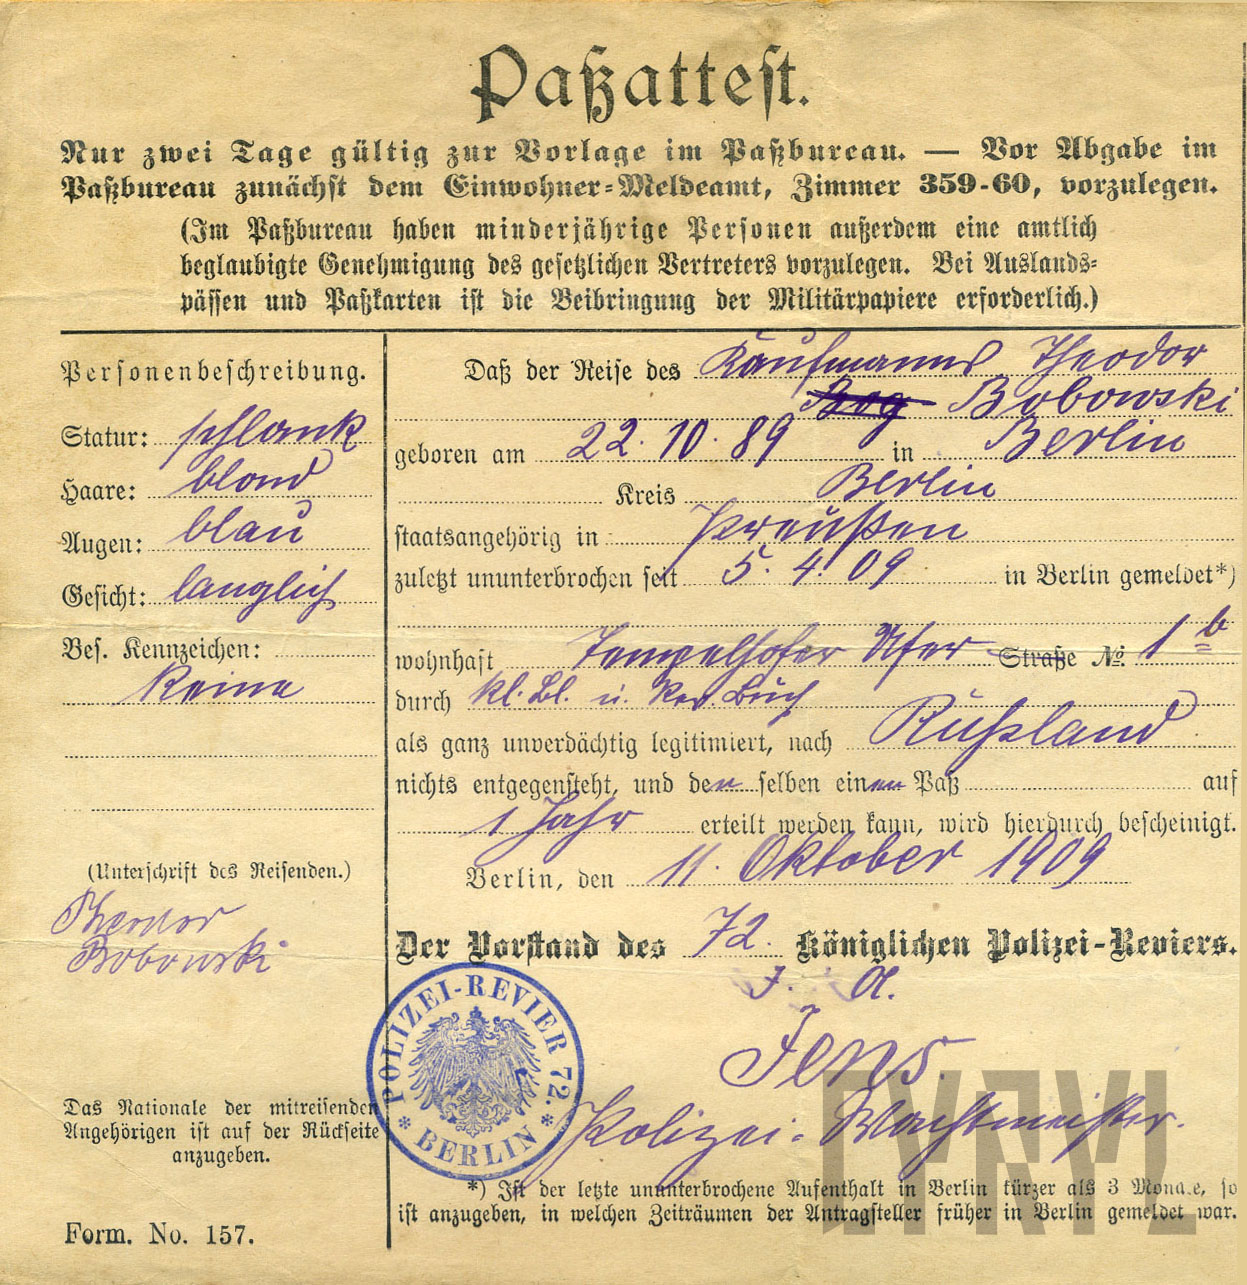 Paßattest.
Nur zwei Tage gültig zur Vorlage im Paßbureau. — Vor Abgabe im
Paßbureau zunächst dem Einwohner-Meldeamt, Zimmer 359-60, vorzulegen.
(Im Paßbureau haben minderjährige Personen außerdem eine amtlich
beglaubigte Genehmigung des gesetzlichen Vertreters vorzulegen. Bei Auslands-
pässen und Paßkarten ist die Beibringung der Militärpapiere erforderlich.)
Personenbeschreibung.
Statur: schlank
Haare: blond
Augen: blau
Gesicht: länglich
Bes. Kennzeichen:
Keine
(Unterschrift des Reisenden.)
Theodor
Bobowski
Das Nationale der mitreisenden
Angehörigen ist auf der Rückseite
anzugeben.
Form. No. 157.
Daß der Reise des Kaufmanns Theodor
Bog Bobowski
geboren am 22. 10. 89 in Berlin
Kreis Berlin
staatsangehörig in Preußen
zuletzt ununterbrochen seit 5. 4. 09 in Berlin gemeldet*)
wohnhaft Tempelhofer Ufer Straße No. 1 b
durch Kl. Bl. u. Rev. Buch
als ganz unverdächtig legitimiert, nach Rußland
nichts entgegensteht, und den selben einen Paß auf
1 Jahr erteilt werden kann, wird hierdurch bescheinigt.
Berlin, den 11. Oktober 1909
Der Vorstand des 72. Königlichen Polizei-Reviers.
I. A.
Jens.
Polizei-Wachtmeister.
POLIZEI-REVIER 72.
* BERLIN *
*) Ist der letzte ununterbrochene Aufenthalt in Berlin kürzer als 3 Monate, so
ist anzugeben, in welchen Zeiträumen der Antragsteller früher in Berlin gemeldet war.